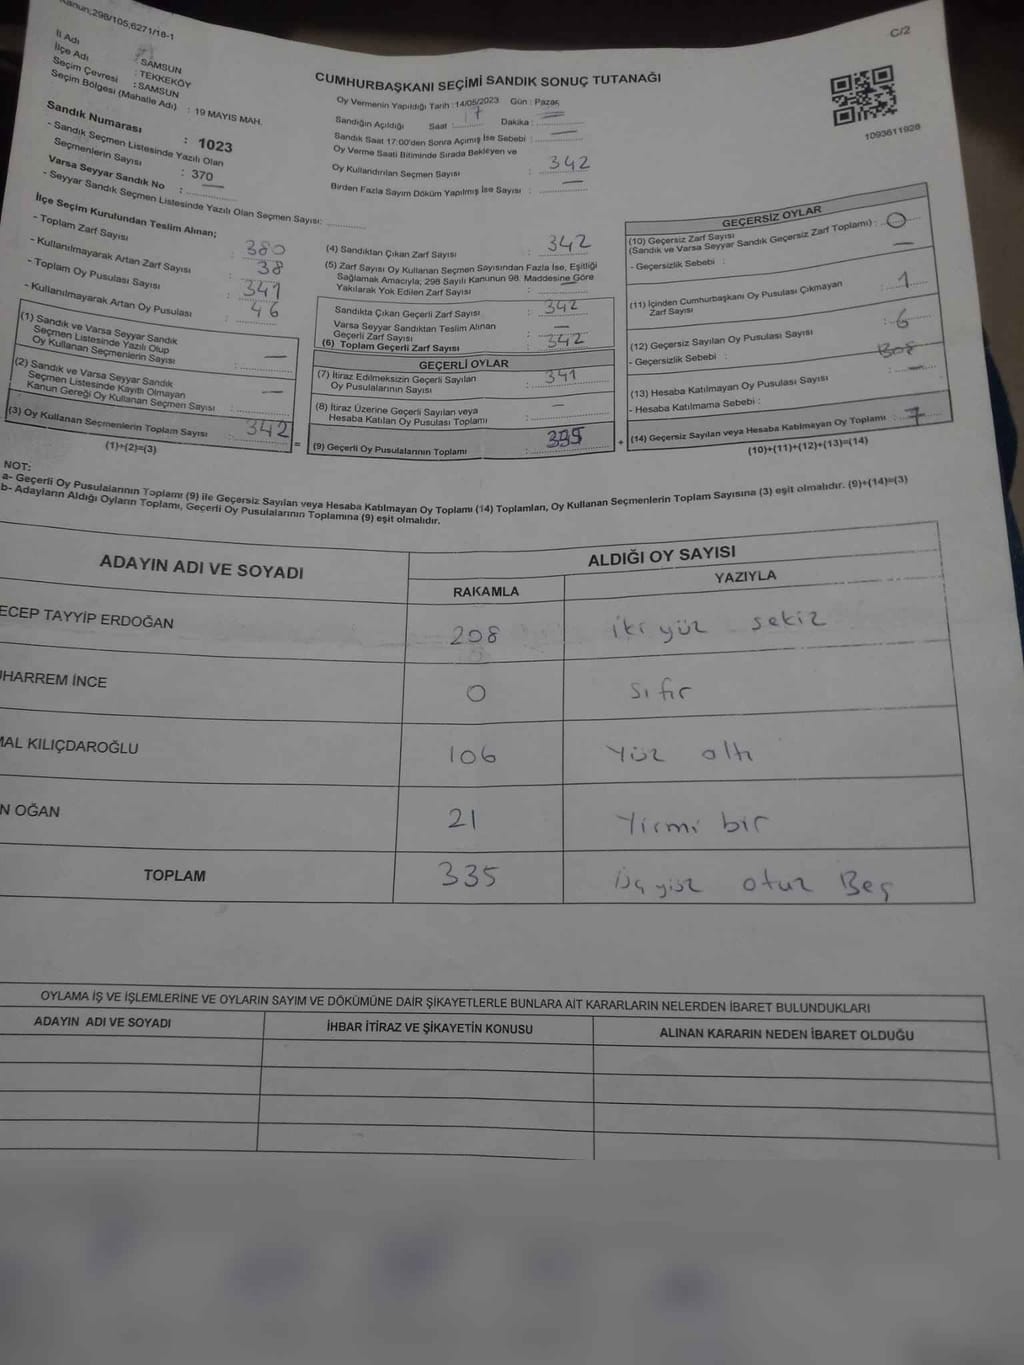 Kanun;298/105;6271/18-1
C/2
İl Adı : SAMSUN
İlçe Adı : TEKKEKÖY
Seçim Çevresi : SAMSUN
Seçim Bölgesi (Mahalle Adı) : 19 MAYIS MAH.
Sandık Numarası : 1023
- Sandık Seçmen Listesinde Yazılı Olan
Seçmenlerin Sayısı : 370
Varsa Seyyar Sandık No : —
- Seyyar Sandık Seçmen Listesinde Yazılı Olan Seçmen Sayısı:
CUMHURBAŞKANI SEÇİMİ SANDIK SONUÇ TUTANAĞI
Oy Vermenin Yapıldığı Tarih :14/05/2023 Gün : Pazar
Sandığın Açıldığı Saat : 17 Dakika : —
Sandık Saat 17:00'den Sonra Açımış İse Sebebi : —
Oy Verme Saati Bitiminde Sırada Bekleyen ve
Oy Kullandırılan Seçmen Sayısı : 342
Birden Fazla Sayım Döküm Yapılmış İse Sayısı : —
1093611928
İlçe Seçim Kurulundan Teslim Alınan;
- Toplam Zarf Sayısı : 380
- Kullanılmayarak Artan Zarf Sayısı : 38
- Toplam Oy Pusulası Sayısı : 341
- Kullanılmayarak Artan Oy Pusulası : 46
(1) Sandık ve Varsa Seyyar Sandık
Seçmen Listesinde Yazılı Olup
Oy Kullanan Seçmenlerin Sayısı : —
(2) Sandık ve Varsa Seyyar Sandık
Seçmen Listesinde Kayıtlı Olmayan
Kanun Gereği Oy Kullanan Seçmen Sayısı : —
(3) Oy Kullanan Seçmenlerin Toplam Sayısı : 342
(1)+(2)=(3)
(4) Sandıktan Çıkan Zarf Sayısı : 342
(5) Zarf Sayısı Oy Kullanan Seçmen Sayısından Fazla İse, Eşitliği
Sağlamak Amacıyla; 298 Sayılı Kanunun 98. Maddesine Göre
Yakılarak Yok Edilen Zarf Sayısı : —
Sandıkta Çıkan Geçerli Zarf Sayısı : 342
Varsa Seyyar Sandıktan Teslim Alınan
Geçerli Zarf Sayısı : —
(6) Toplam Geçerli Zarf Sayısı : 342
GEÇERLİ OYLAR
(7) İtiraz Edilmeksizin Geçerli Sayılan
Oy Pusulalarının Sayısı : 341
(8) İtiraz Üzerine Geçerli Sayılan veya
Hesaba Katılan Oy Pusulası Toplamı : —
(9) Geçerli Oy Pusulalarının Toplamı : 335
GEÇERSİZ OYLAR
(10) Geçersiz Zarf Sayısı
(Sandık ve Varsa Seyyar Sandık Geçersiz Zarf Toplamı) : 0
- Geçersizlik Sebebi : —
(11) İçinden Cumhurbaşkanı Oy Pusulası Çıkmayan
Zarf Sayısı : 1
(12) Geçersiz Sayılan Oy Pusulası Sayısı : 6
- Geçersizlik Sebebi :
(13) Hesaba Katılmayan Oy Pusulası Sayısı : —
- Hesaba Katılmama Sebebi :
(14) Geçersiz Sayılan veya Hesaba Katılmayan Oy Toplamı : 7
(10)+(11)+(12)+(13)=(14)
NOT:
a- Geçerli Oy Pusulalarının Toplamı (9) ile Geçersiz Sayılan veya Hesaba Katılmayan Oy Toplamı (14) Toplamları, Oy Kullanan Seçmenlerin Toplam Sayısına (3) eşit olmalıdır. (9)+(14)=(3)
b- Adayların Aldığı Oyların Toplamı, Geçerli Oy Pusulalarının Toplamına (9) eşit olmalıdır.
ADAYIN ADI VE SOYADI ALDIĞI OY SAYISI
RAKAMLA YAZIYLA
ECEP TAYYİP ERDOĞAN 208 iki yüz sekiz
UHARREM İNCE 0 sıfır
MAL KILIÇDAROĞLU 106 Yüz altı
N OĞAN 21 Yirmi bir
TOPLAM 335 üç yüz otuz Beş
OYLAMA İŞ VE İŞLEMLERİNE VE OYLARIN SAYIM VE DÖKÜMÜNE DAİR ŞİKAYETLERLE BUNLARA AİT KARARLARIN NELERDEN İBARET BULUNDUKLARI
ADAYIN ADI VE SOYADI İHBAR İTİRAZ VE ŞİKAYETİN KONUSU ALINAN KARARIN NEDEN İBARET OLDUĞU